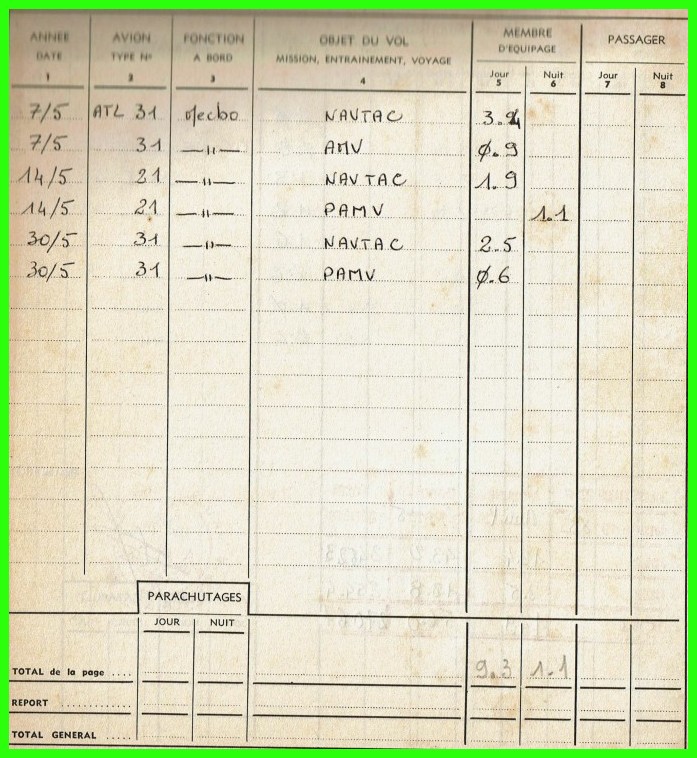 ANNÉE AVION FONCTION OBJET DU VOL MEMBRE D'EQUIPAGE PASSAGER
DATE TYPE N° A BORD MISSION, ENTRAINEMENT, VOYAGE Jour Nuit Jour Nuit
1 2 3 4 5 6 7 8
7/5 ATL 31 Mecbo NAVTAC 3.4
7/5 31 —"— AMV 0.9
14/5 21 —"— NAVTAC 1.9
14/5 21 —"— PAMV 1.1
30/5 31 —"— NAVTAC 2.5
30/5 31 —"— PAMV 0.6
PARACHUTAGES
JOUR NUIT
TOTAL de la page .... 9.3 1.1
REPORT ............
TOTAL GENERAL .....